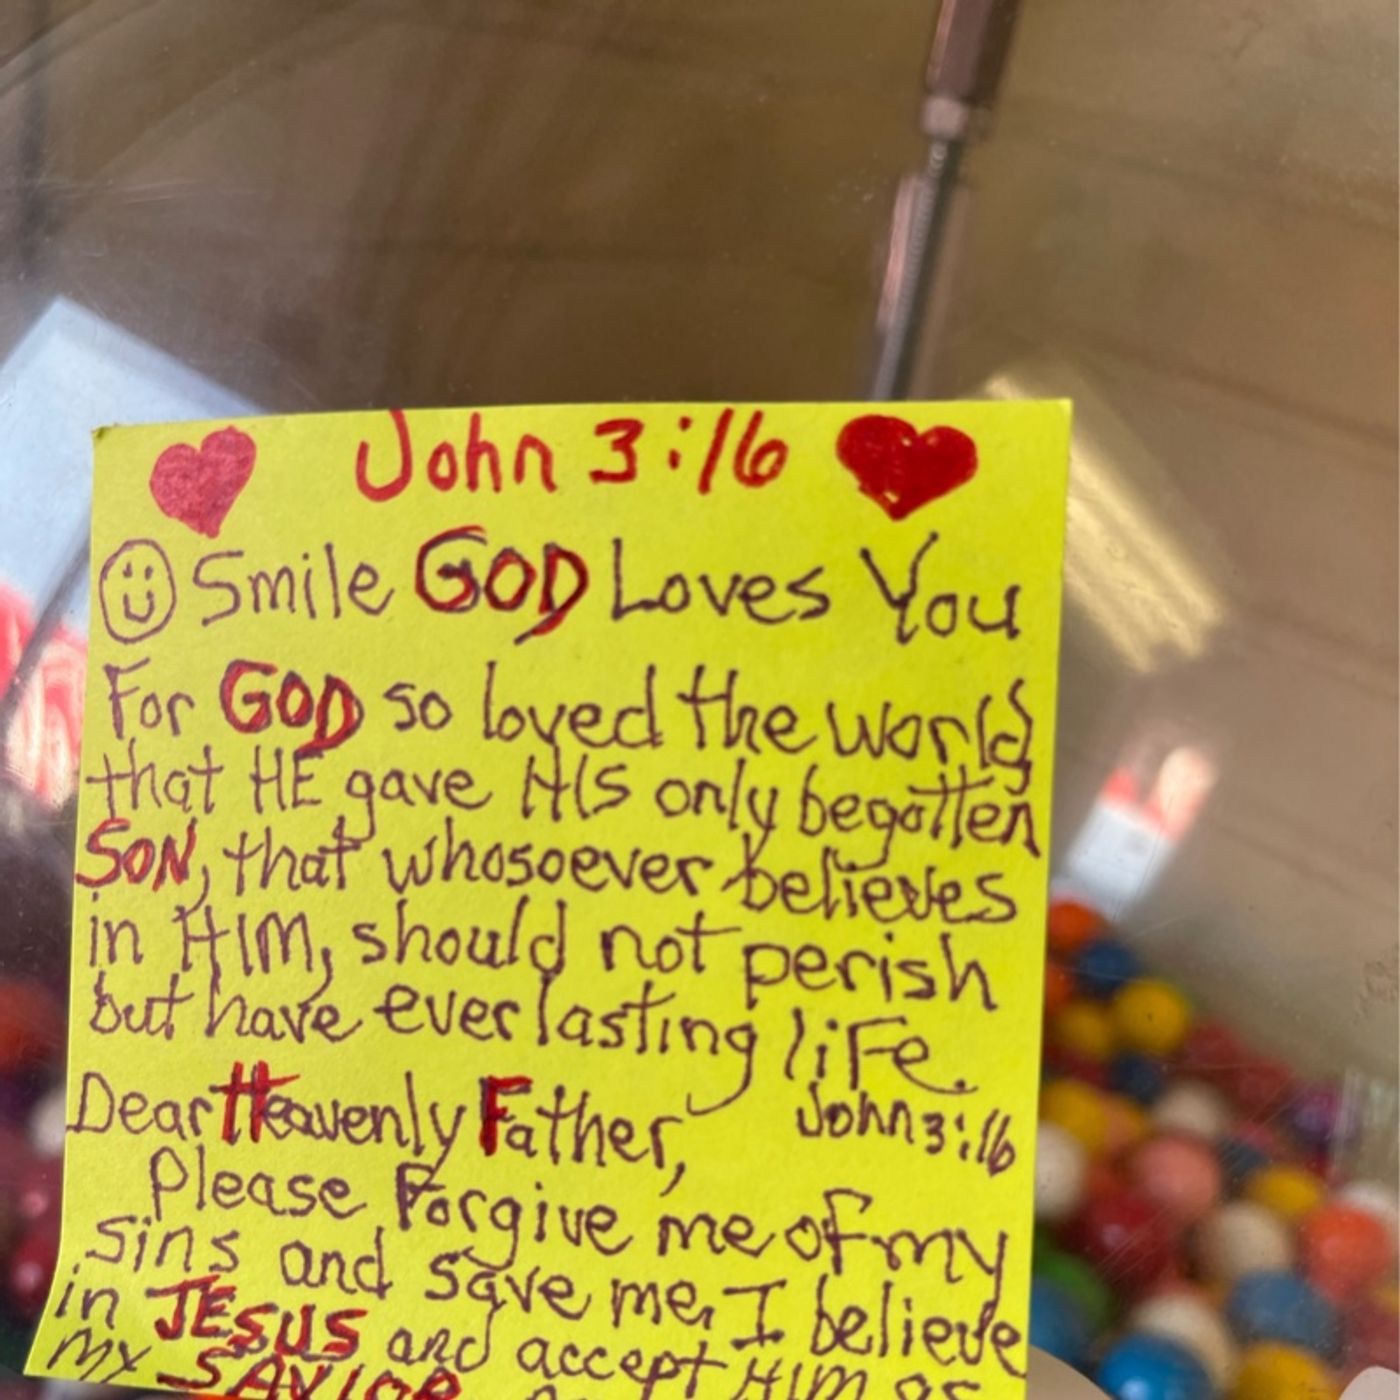 John 3:16
Smile GOD Loves You
For GOD so loved the world
that HE gave HIS only begotten
SON, that whosoever believes
in HIM, should not perish
but have everlasting life.
John 3:16
Dear Heavenly Father,
Please Forgive me of my
sins and save me, I believe
in JESUS and accept HIM as
my SAVIOR